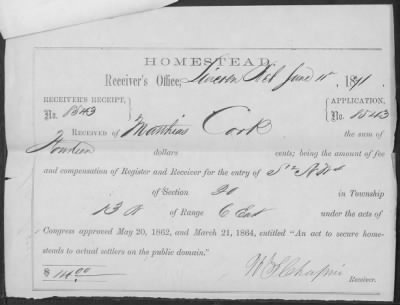 HOMESTEAD.
Receiver's Office, Lincoln Neb June 1st, 1871.
RECEIVER'S RECEIPT, No. 1543
APPLICATION, No. 1543
RECEIVED OF Matthias Cook the sum of
fourteen dollars cents; being the amount of fee
and compensation of Register and Receiver for the entry of S ½
of Section 20 in Township
13 N of Range 6 East under the acts of
Congress approved May 20, 1862, and March 21, 1864, entitled "An act to secure home-
steads to actual settlers on the public domain."
$ 14.00
Receiver.